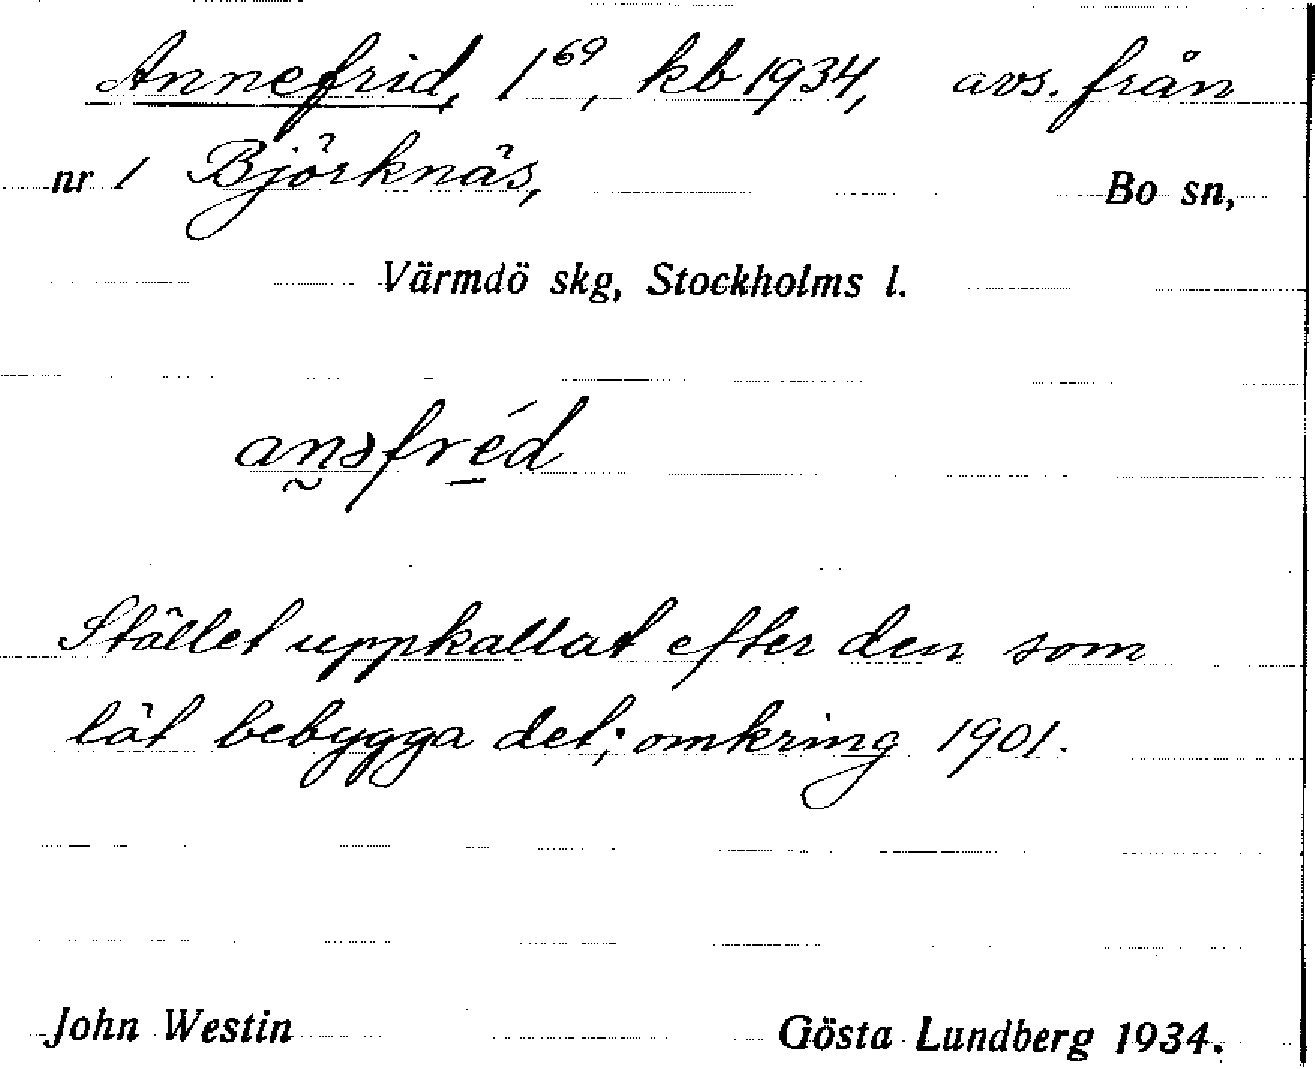 Annefrid, 1⁶⁹, kb 1934, avs. från
nr 1 Björknäs, Bo sn,
Värmdö skg, Stockholms l.
anəfréd
Stället uppkallat efter den som
låt bebygga det; omkring 1901.
John Westin Gösta Lundberg 1934.